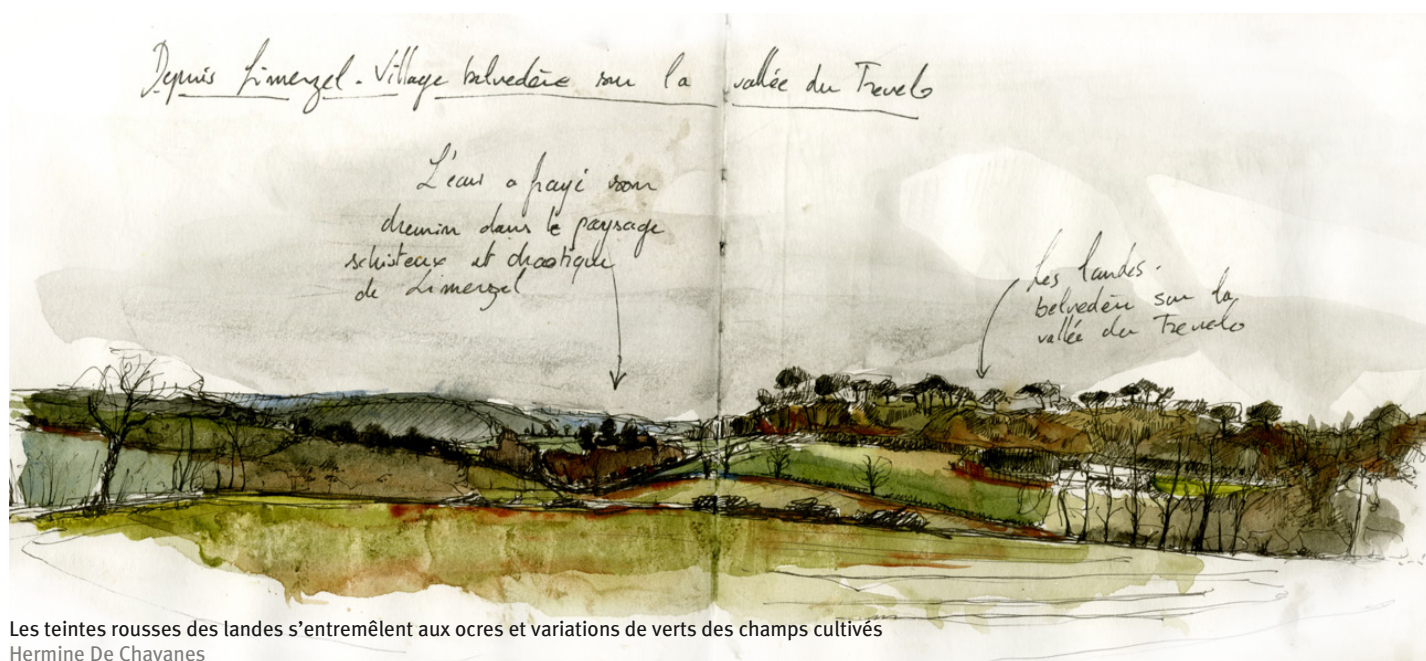 Depuis Limerzel - Village belvedère sur la vallée du Trevelo
L'eau a frayé son
chemin dans le paysage
schisteux et chaotique
de Limerzel
Les landes -
belvedère sur la
vallée du Trevelo
Les teintes rousses des landes s'entremêlent aux ocres et variations de verts des champs cultivés
Hermine De Chavanes